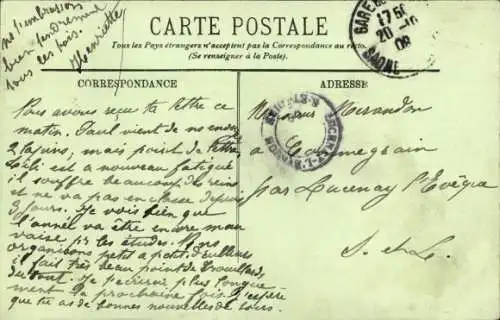 ns t'embrassons
bien tendrement
tous les trois.
Henriette
CARTE POSTALE
Tous les Pays étrangers n'acceptent pas la Correspondance au recto
(Se renseigner à la Poste).
CORRESPONDANCE
ADRESSE
GARE DE
17 50
20
09
SAONE
Nous avons reçu ta lettre ce
matin. Paul vient de ns envoyer
2 lapins, mais point de lettre.
est a nouveau fatigué
il souffre beaucoup des reins
et ne va pas en classe depuis
3 jours. Je vois bien que
l'année va être encore mau
vaise pr les études. Ns ns
organisons petit à petit.
il fait très beau point de brouillards
du tout. Je t'écrirai plus longue
ment la prochaine fois. J'espère
que tu as de bonnes nouvelles de tous.
Monsieur Mirandon
à
par Lucenay l'Evêque
S. et L.